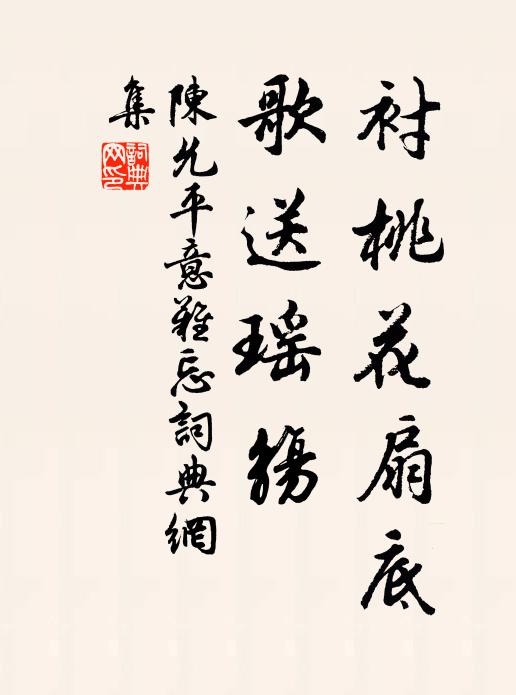 衬桃花扇底
歌送瑶觞
陳允平意難忘詞典網
集
詞典網印